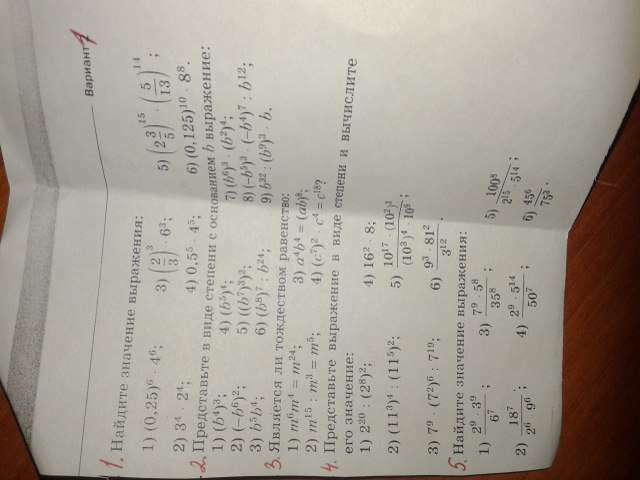 Вариант 1
1. Найдите значение выражения:
1) (0,25)⁶ · 4⁶; 3) (2/3)³ · 6³; 5) (2 3/5)¹⁵ · (5/13)¹⁴;
2) 3⁴ · 2⁴; 4) 0,5⁵ · 4⁵; 6) (0,125)¹⁰ · 8⁸.
2. Представьте в виде степени с основанием b выражение:
1) (b⁴)³; 4) (b⁵)⁴; 7) (b⁶)³ · (b²)⁴;
2) (−b⁶)²; 5) ((b⁷)³)²; 8) (−b⁵)³ · (−b⁴)⁷ : b¹²;
3) b⁵b⁴; 6) (b⁸)⁷ : b²⁴; 9) b³² : (b⁹)³ · b.
3. Является ли тождеством равенство:
1) m⁶m⁴ = m²⁴; 3) a⁴b⁴ = (ab)⁸;
2) m¹⁵ : m³ = m⁵; 4) (c⁷)² · c⁴ = c¹⁸?
4. Представьте выражение в виде степени и вычислите
его значение:
1) 2²⁰ : (2⁸)²; 4) 16² · 8;
2) (11³)⁴ : (11⁵)²; 5) 10¹⁷ · (10²)³ / (10³)⁴ · 10⁸;
3) 7⁹ · (7²)⁶ : 7¹⁹; 6) 9³ · 81² / 3¹².
5. Найдите значение выражения:
1) 2⁹ · 3⁹ / 6⁷; 3) 7⁹ · 5⁸ / 35⁸; 5) 100⁸ / 2¹⁵ · 5¹⁴;
2) 18⁷ / 2⁶ · 9⁶; 4) 2⁹ · 5¹⁴ / 50⁷; 6) 45⁶ / 75³.